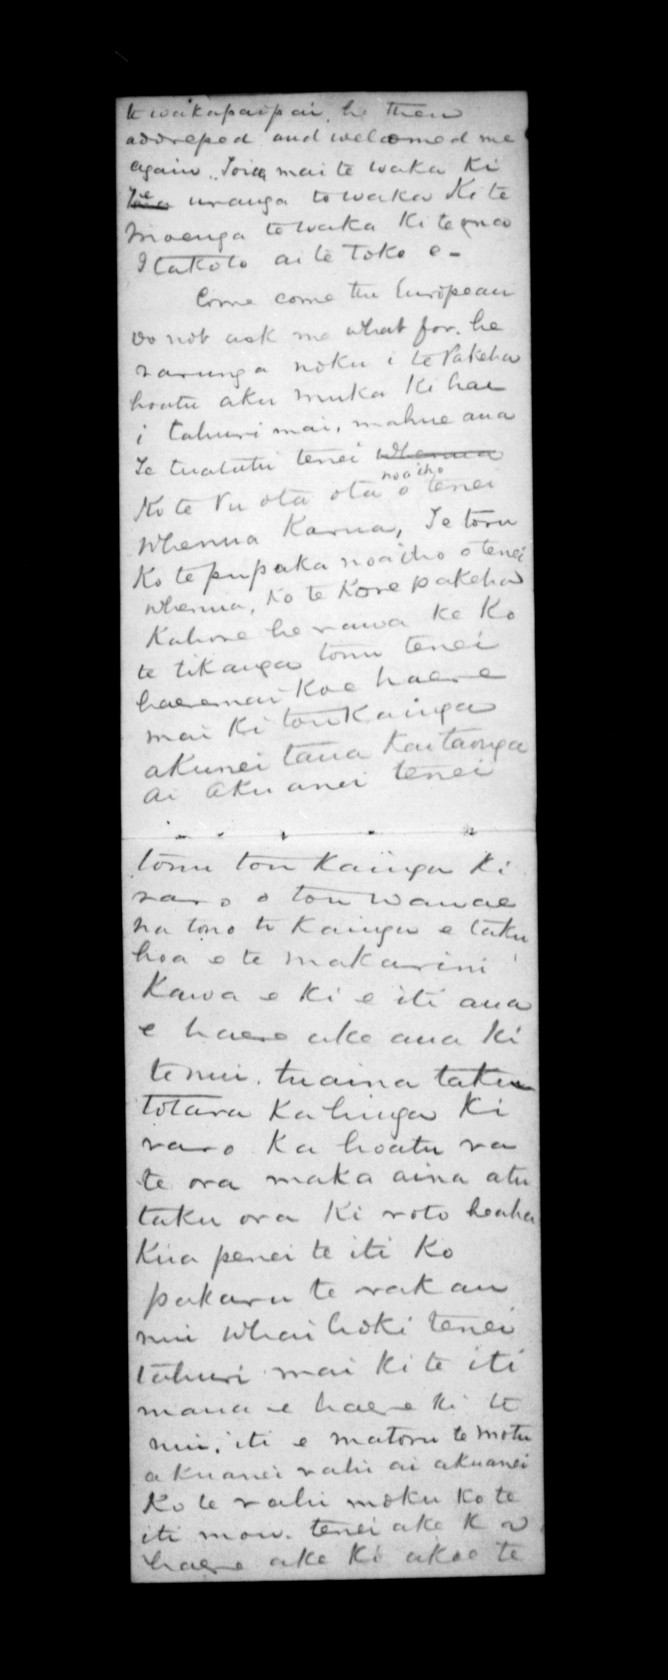 te wakapaipai, he then
addressed and welcomed me
again. Toia mai te waka ki
te uranga te waka Ki te
moenga te waka Ki te
I takoto ai te Toke e -
Come come the European
do not ask me what for. he
raruga noku i te Pakeha
hoatu aku muka Ki hai
i tahuri mai, mahue ana
Te tuatutu tenei whenua
noaiho
Ko te Vu ota ota o tenei
whenua Karua, Te toru
Ko te pupaka noaiho o tenei
whenua, Ko te Kore pakeha
Kahore he rawa ke Ko
te tikanga tonu tenei
haeremai Koe haere
mai Ki tou Kainga
akunei taua Kaitaonga
ai akuanei tenei
tonu tou Kainga Ki
raro o tou wawae
na tono te Kainga e taku
hoa e te makarini
Kawa e Ki e iti ana
e haere ake ana Ki
te nui. tuaina taku
totara Ka hinga Ki
raro Ka hoatu ra
te ora maka aina atu
taku ora Ki roto heaha
Kua penei te iti Ko
pakaru te rakau
nui whai hoki tenei
tahuri mai Ki te iti
mana e haere Ki te
nui, iti e matoru te motu
akuanei rahi ai akuanei
Ko te rahi moku Ko te
iti mou. tenei ake K
haere ake Ki akoe te